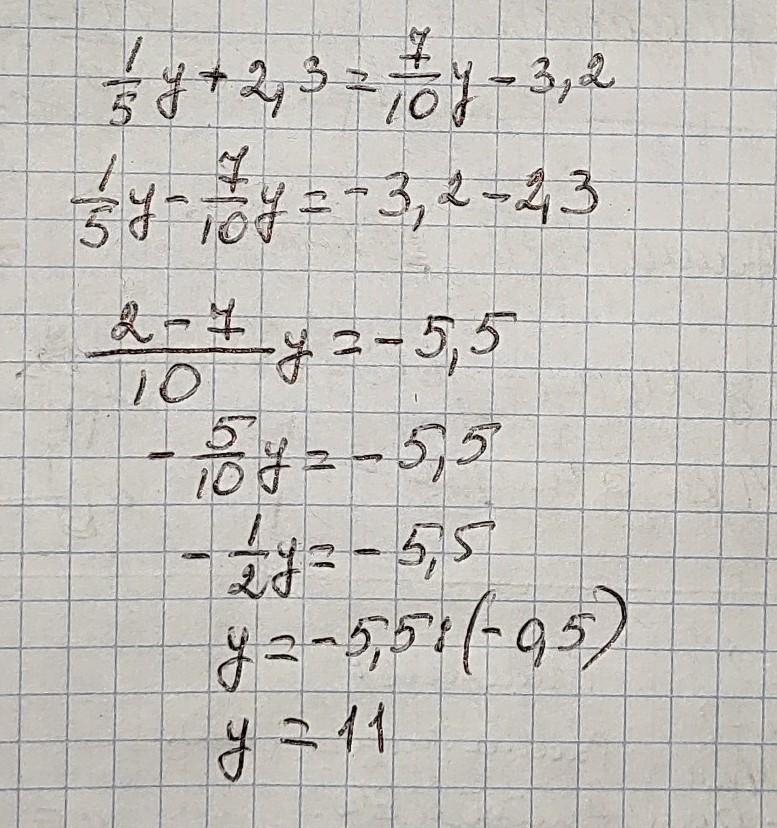 1/5 y + 2,3 = 7/10 y - 3,2
1/5 y - 7/10 y = -3,2 - 2,3
(2 - 7)/10 y = -5,5
- 5/10 y = -5,5
- 1/2 y = -5,5
y = -5,5 : (-0,5)
y = 11